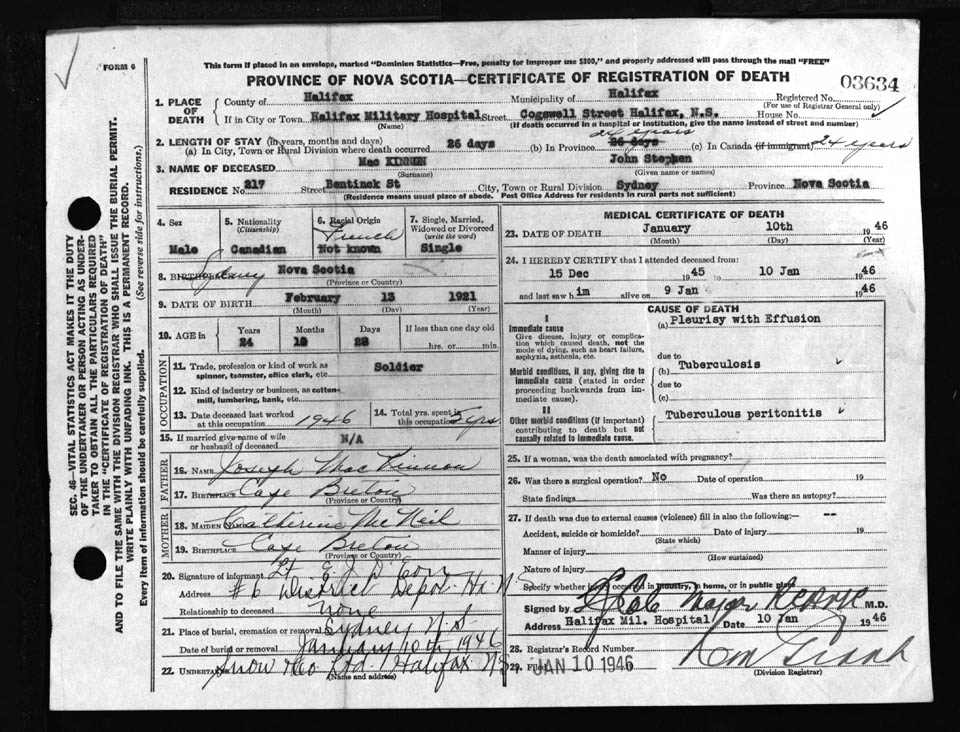 FORM 6
This form if placed in an envelope, marked "Dominion Statistics—Free, penalty for improper use $300," and properly addressed will pass through the mail "FREE"
PROVINCE OF NOVA SCOTIA—CERTIFICATE OF REGISTRATION OF DEATH
03634
1. PLACE OF DEATH
County of Halifax Municipality of Halifax Registered No.
(For use of Registrar General only)
If in City or Town Halifax Military Hospital Street Cogswell Street Halifax, N.S. House No.
(Name) (If death occurred in a hospital or institution, give the name instead of street and number)
2. LENGTH OF STAY (in years, months and days)
24 years
(a) In City, Town or Rural Division where death occurred 26 days (b) In Province 26 days (c) In Canada (if immigrant) 24 years
3. NAME OF DECEASED Mac KINNON John Stephen
(Surname) (Given name or names)
RESIDENCE No. 217 Street Bentinck St City, Town or Rural Division Sydney Province Nova Scotia
(Residence means usual place of abode. Post Office Address for residents in rural parts not sufficient)
4. Sex
Male
5. Nationality
(Citizenship)
Canadian
6. Racial Origin
French
Not known
7. Single, Married, Widowed or Divorced
(write the word)
Single
8. BIRTHPLACE Sydney Nova Scotia
(Province or Country)
9. DATE OF BIRTH February 13 1921
(Month) (Day) (Year)
10. AGE in Years Months Days If less than one day old
24 10 28 hrs. or min.
OCCUPATION
11. Trade, profession or kind of work as spinner, teamster, office clerk, etc. Soldier
12. Kind of industry or business, as cotton-mill, lumbering, bank, etc.
13. Date deceased last worked at this occupation 1946
14. Total yrs. spent in this occupation yrs.
15. If married give name of wife or husband of deceased N/A
FATHER
16. NAME Joseph MacKinnon
17. BIRTHPLACE Cape Breton
(Province or Country)
MOTHER
18. MAIDEN NAME Catherine McNeil
19. BIRTHPLACE Cape Breton
(Province or Country)
20. Signature of informant Lt. E. J. D.
Address #6 District Depot Hx NS
Relationship to deceased none
21. Place of burial, cremation or removal Sydney N.S.
Date of burial or removal January 10th 1946
22. UNDERTAKER Snow & Co Ltd. Halifax NS
(Name and address)
MEDICAL CERTIFICATE OF DEATH
23. DATE OF DEATH January 10th 1946
(Month) (Day) (Year)
24. I HEREBY CERTIFY that I attended deceased from:
15 Dec 1945 to 10 Jan 1946
and last saw him alive on 9 Jan 1946
CAUSE OF DEATH
I
Immediate cause
Give disease, injury or complication which caused death, not the mode of dying, such as heart failure, asphyxia, asthenia, etc.
(a) Pleurisy with Effusion
due to
Morbid conditions, if any, giving rise to immediate cause (stated in order proceeding backwards from immediate cause).
(b) Tuberculosis
due to
(c)
II
Other morbid conditions (if important) contributing to death but not causally related to immediate cause.
Tuberculous peritonitis
25. If a woman, was the death associated with pregnancy?
26. Was there a surgical operation? No Date of operation 19
State findings Was there an autopsy?
27. If death was due to external causes (violence) fill in also the following:— --
Accident, suicide or homicide? Date of injury 19
(State which)
Manner of injury
(How sustained)
Nature of injury
Specify whether injury occurred in industry, in home, or in public place
Signed by Major M.D.
Address Halifax Mil. Hospital Date 10 Jan 1946
28. Registrar's Record Number
29. Filed JAN 10 1946
(Division Registrar)
SEC. 46—VITAL STATISTICS ACT MAKES IT THE DUTY OF THE UNDERTAKER OR PERSON ACTING AS UNDERTAKER TO OBTAIN ALL THE PARTICULARS REQUIRED IN THE "CERTIFICATE OF REGISTRATION OF DEATH" AND TO FILE THE SAME WITH THE DIVISION REGISTRAR WHO SHALL ISSUE THE BURIAL PERMIT.
WRITE PLAINLY WITH UNFADING INK. THIS IS A PERMANENT RECORD.
Every item of information should be carefully supplied. (See reverse side for instructions.)